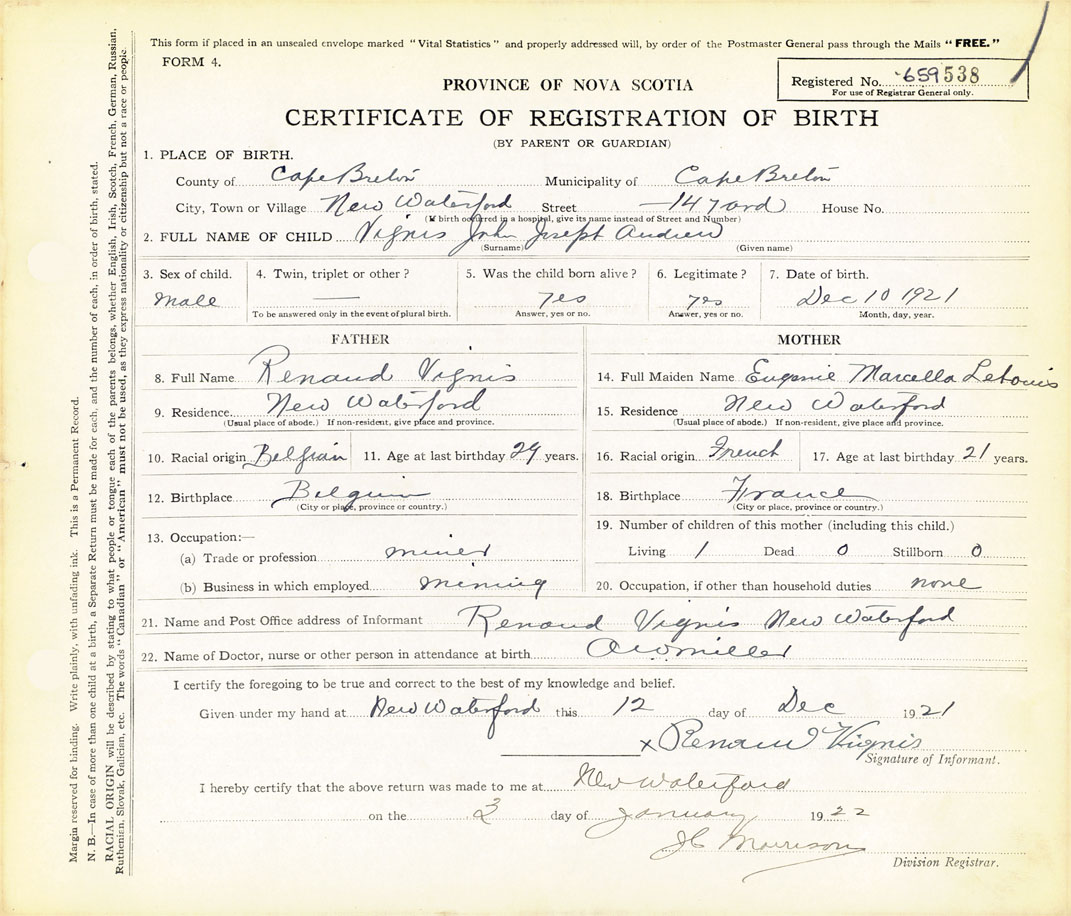 This form if placed in an unsealed envelope marked "Vital Statistics" and properly addressed will, by order of the Postmaster General pass through the Mails "FREE."
FORM 4.
Registered No. 659538
For use of Registrar General only.
PROVINCE OF NOVA SCOTIA
CERTIFICATE OF REGISTRATION OF BIRTH
(BY PARENT OR GUARDIAN)
1. PLACE OF BIRTH.
County of Cape Breton Municipality of Cape Breton
City, Town or Village New Waterford Street 14 yard House No.
(If birth occurred in a hospital, give its name instead of Street and Number)
2. FULL NAME OF CHILD Vignis John Joseph Andrew
(Surname) (Given name)
3. Sex of child. 4. Twin, triplet or other? 5. Was the child born alive? 6. Legitimate? 7. Date of birth.
Male — yes yes Dec 10 1921
To be answered only in the event of plural birth. Answer, yes or no. Answer, yes or no. Month, day, year.
FATHER
8. Full Name Renaud Vignis
9. Residence New Waterford
(Usual place of abode.) If non-resident, give place and province.
10. Racial origin Belgian 11. Age at last birthday 29 years.
12. Birthplace Belgium
(City or place, province or country.)
13. Occupation:—
(a) Trade or profession miner
(b) Business in which employed mining
MOTHER
14. Full Maiden Name Eugenie Marcella
15. Residence New Waterford
(Usual place of abode.) If non-resident, give place and province.
16. Racial origin French 17. Age at last birthday 21 years.
18. Birthplace France
(City or place, province or country.)
19. Number of children of this mother (including this child.)
Living 1 Dead 0 Stillborn 0
20. Occupation, if other than household duties none
21. Name and Post Office address of Informant Renaud Vignis New Waterford
22. Name of Doctor, nurse or other person in attendance at birth Miller
I certify the foregoing to be true and correct to the best of my knowledge and belief.
Given under my hand at New Waterford this 12 day of Dec 1921
x Renaud Vignis
Signature of Informant.
I hereby certify that the above return was made to me at New Waterford
on the 3 day of January 1922
JC Morrison
Division Registrar.
Margin reserved for binding. Write plainly, with unfading ink. This is a Permanent Record.
N. B.—In case of more than one child at a birth, a Separate Return must be made for each, and the number of each, in order of birth, stated.
RACIAL ORIGIN will be described by stating to what people or tongue each of the parents belongs, whether English, Irish, Scotch, French, German, Russian,
Ruthenian, Slovak, Galician, etc. The words "Canadian" or "American" must not be used, as they express nationality or citizenship but not a race or people.